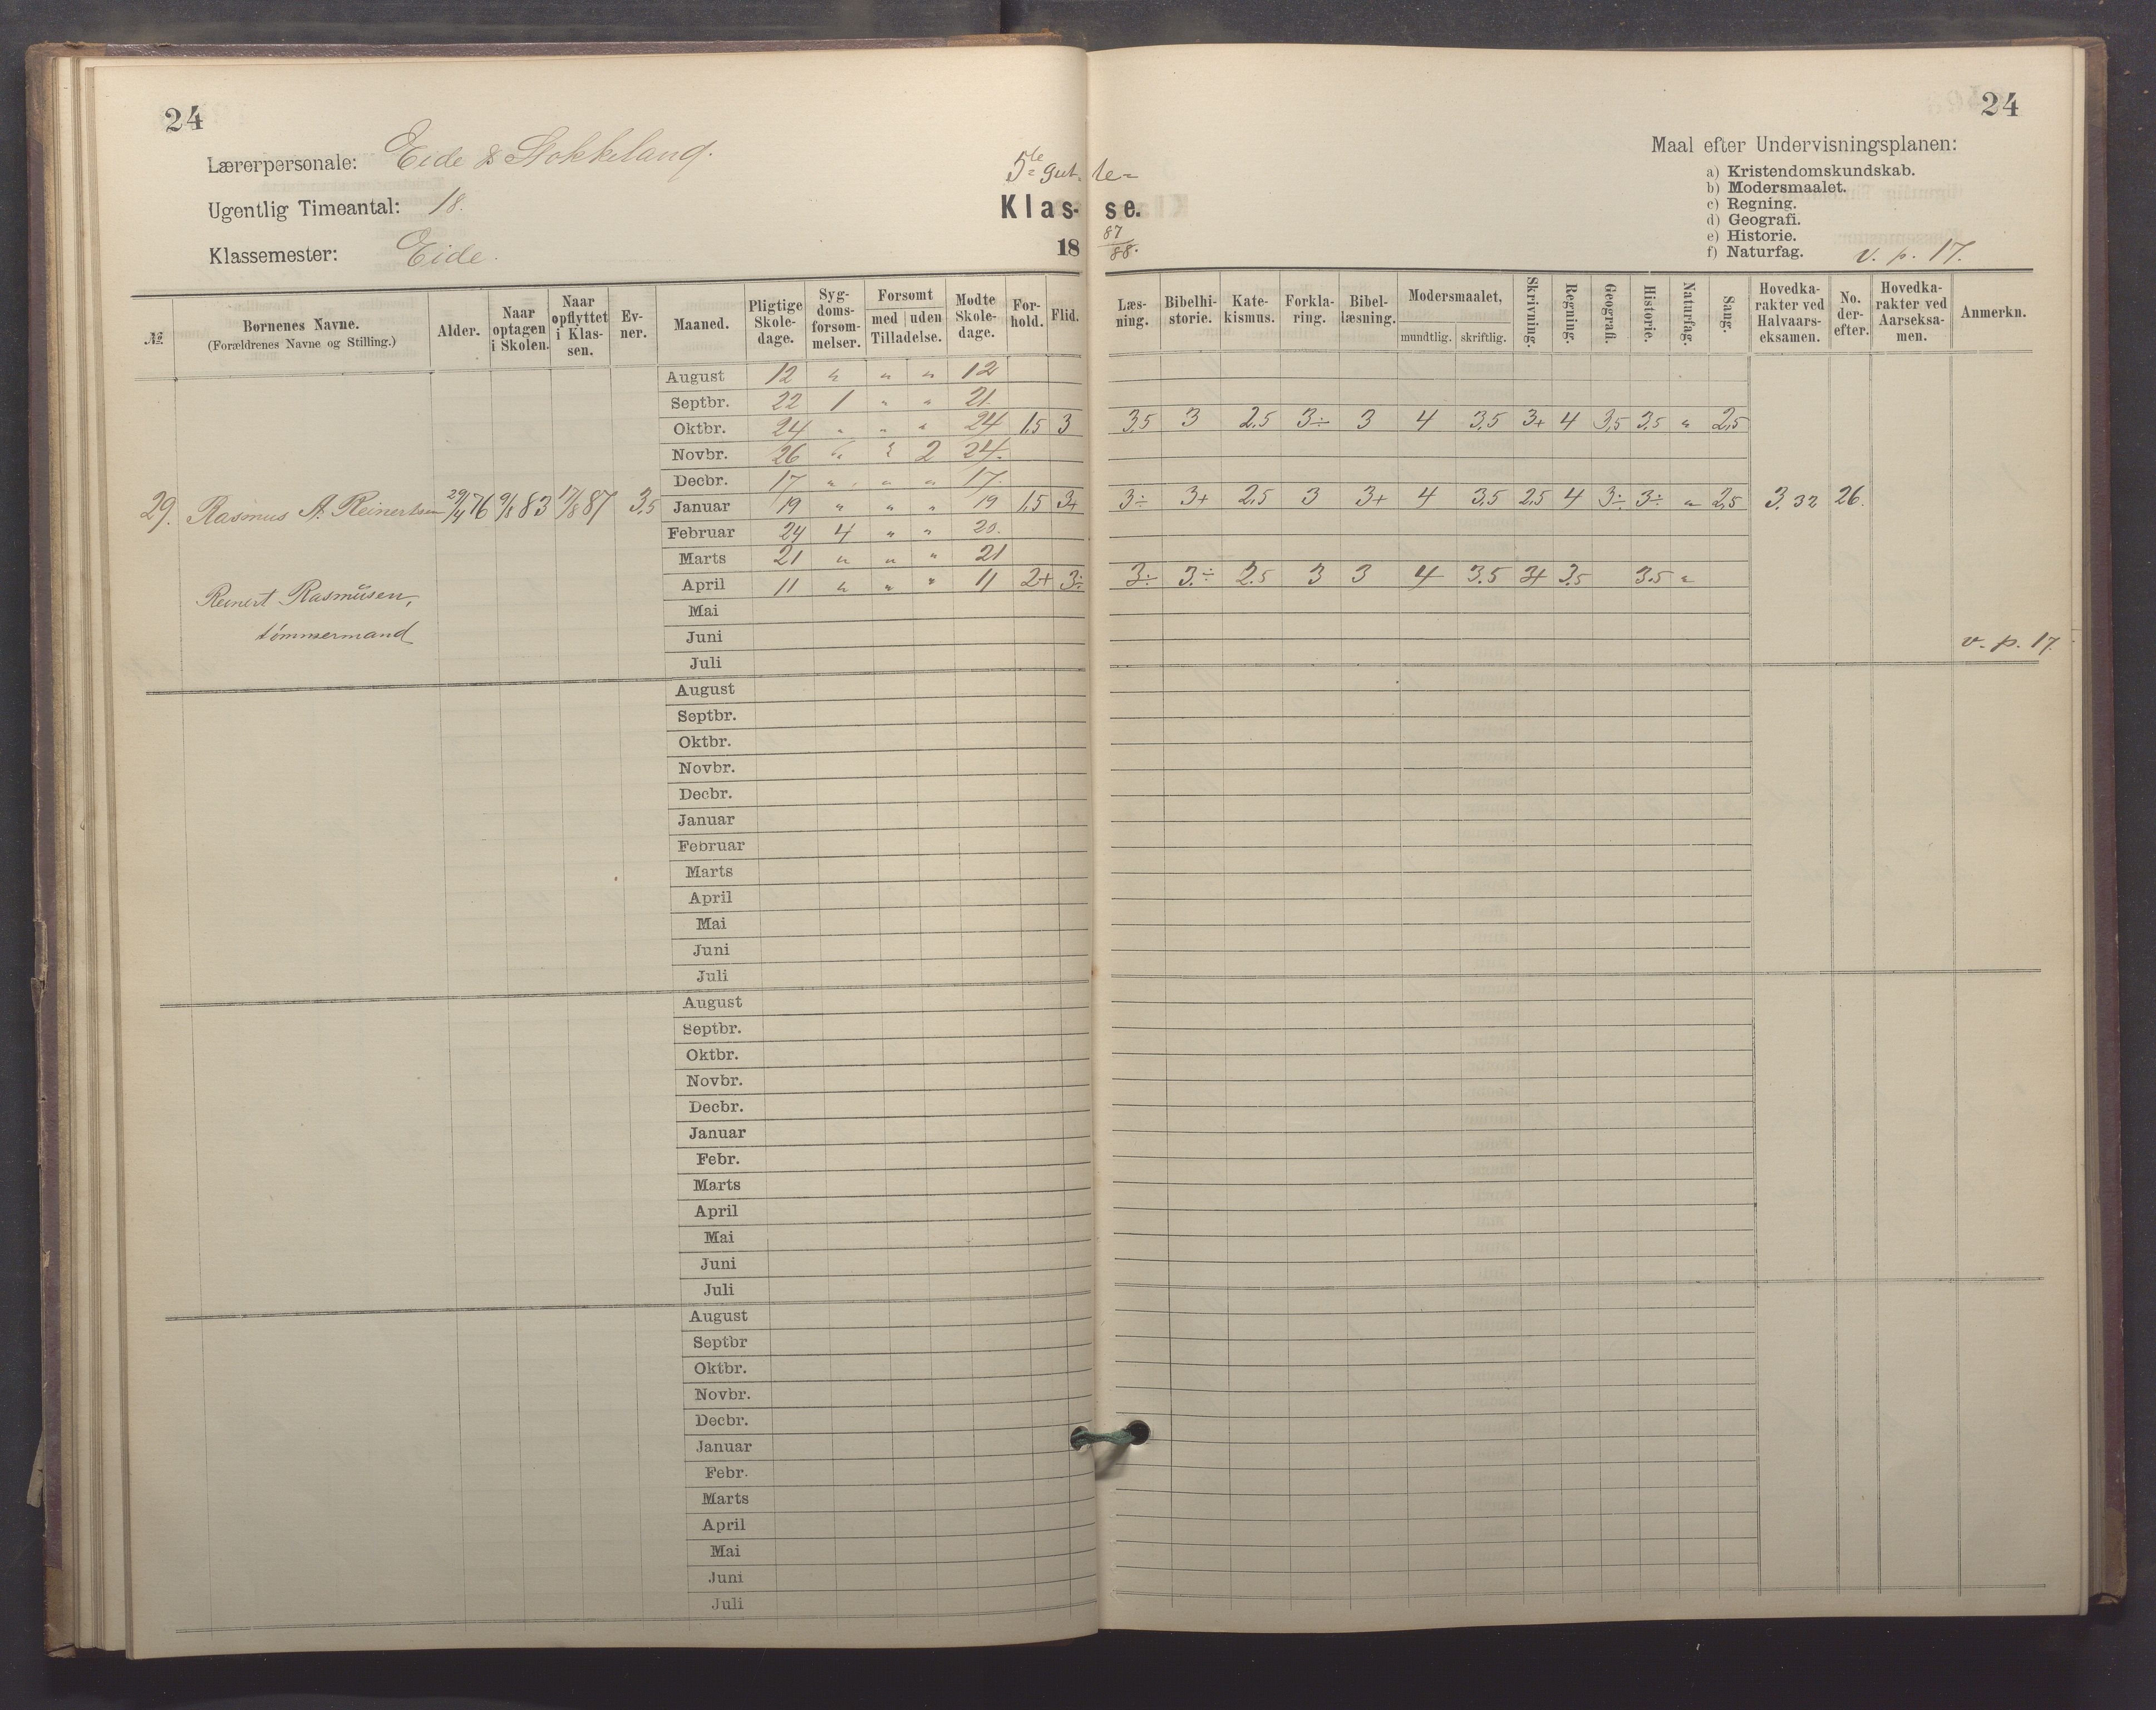 24
24
Lærerpersonale: Eide & Stokkeland.
Ugentlig Timeantal: 18.
Klassemester: Eide.
5te gut- te-
Klas- se.
18 87/88.
Maal efter Undervisningsplanen:
a) Kristendomskundskab.
b) Modersmaalet.
c) Regning.
d) Geografi.
e) Historie.
f) Naturfag. v. p. 17.
№ Børnenes Navne. (Forældrenes Navne og Stilling.) Alder. Naar optagen i Skolen. Naar opflyttet i Klas- sen. Ev- ner. Maaned. Pligtige Skole- dage. Syg- doms- forsøm- melser. Forsømt med uden Tilladelse. Mødte Skole- dage. For- hold. Flid. Læs- ning. Bibelhi- storie. Kate- kismus. Forkla- ring. Bibel- læsning. Modersmaalet, mundtlig. skriftlig. Skrivning. Regning. Geografi. Historie. Naturfag. Sang. Hovedka- rakter ved Halvaars- eksamen. No. der- efter. Hovedka- rakter ved Aarseksa- men. Anmerkn.
August 12 " " " 12
Septbr. 22 1 " " 21
Oktbr. 24 " " " 24 1,5 3 3,5 3 2,5 3÷ 3 4 3,5 3+ 4 3,5 3,5 " 2,5
Novbr. 26 " " 2 24.
Decbr. 17 " " " 17.
29. Rasmus A. Reinertsen 29/4 76 9/8 83 17/8 87 3,5 Januar 19 " " " 19 1,5 3+ 3÷ 3+ 2,5 3 3+ 4 3,5 2,5 4 3÷ 3÷ " 2,5 3,32 26.
Februar 24 4 " " 20.
Marts 21 " " " 21
April 11 " " " 11 2+ 3÷ 3÷ 3÷ 2,5 3 3 4 3,5 3+ 3,5 3,5 "
Reinert Rasmusen,
Mai
tømmermand
Juni v. p. 17.
Juli
August
Septbr.
Oktbr.
Novbr.
Decbr.
Januar
Februar
Marts
April
Mai
Juni
Juli
August
Septbr.
Oktbr.
Novbr.
Decbr.
Januar
Febr.
Marts
April
Mai
Juni
Juli
August
Septbr
Oktbr.
Novbr.
Decbr.
Januar
Febr.
Marts
April
Mai
Juni
Juli